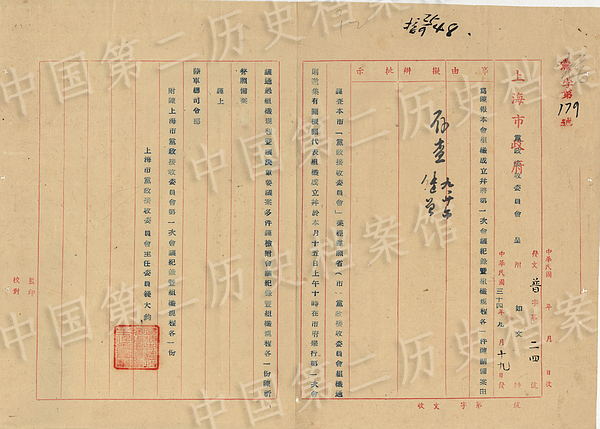 黨字第179號
上海市政府
黨政接收委員會 呈 附 如文 件 號
中華民國 年 月 日收
發文 普字第 二四 號
中華民國三十四年九月十九日發
事由擬辦批示
為陳報本會組織成立并將第一次會議紀錄暨組織規程各一件陳請備案由
存查
九、廿六
謹查本市「黨政接收委員會」業經遵照省(市)黨政接收委員會組織通
則邀集有關機關代表組織成立并於本月十五日上午十時在市府舉行第一次會
議通過組織規程暨議決重要議案多件謹檢附會議紀錄暨組織規程各一份陳祈
鑒賜備案
謹上
陸軍總司令部
附陳上海市黨政接收委員會第一次會議紀錄暨組織規程各一份
上海市黨政接收委員會主任委員錢大鈞
監印
校對
收文 字第 號
中国第二历史档案馆